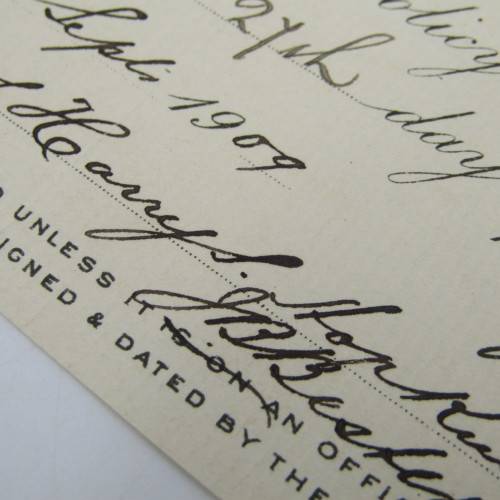 olicy
27th day
Sept. 1909
Harry S. Hopk
UNLESS IT IS ON AN OFFI
IGNED & DATED BY THE